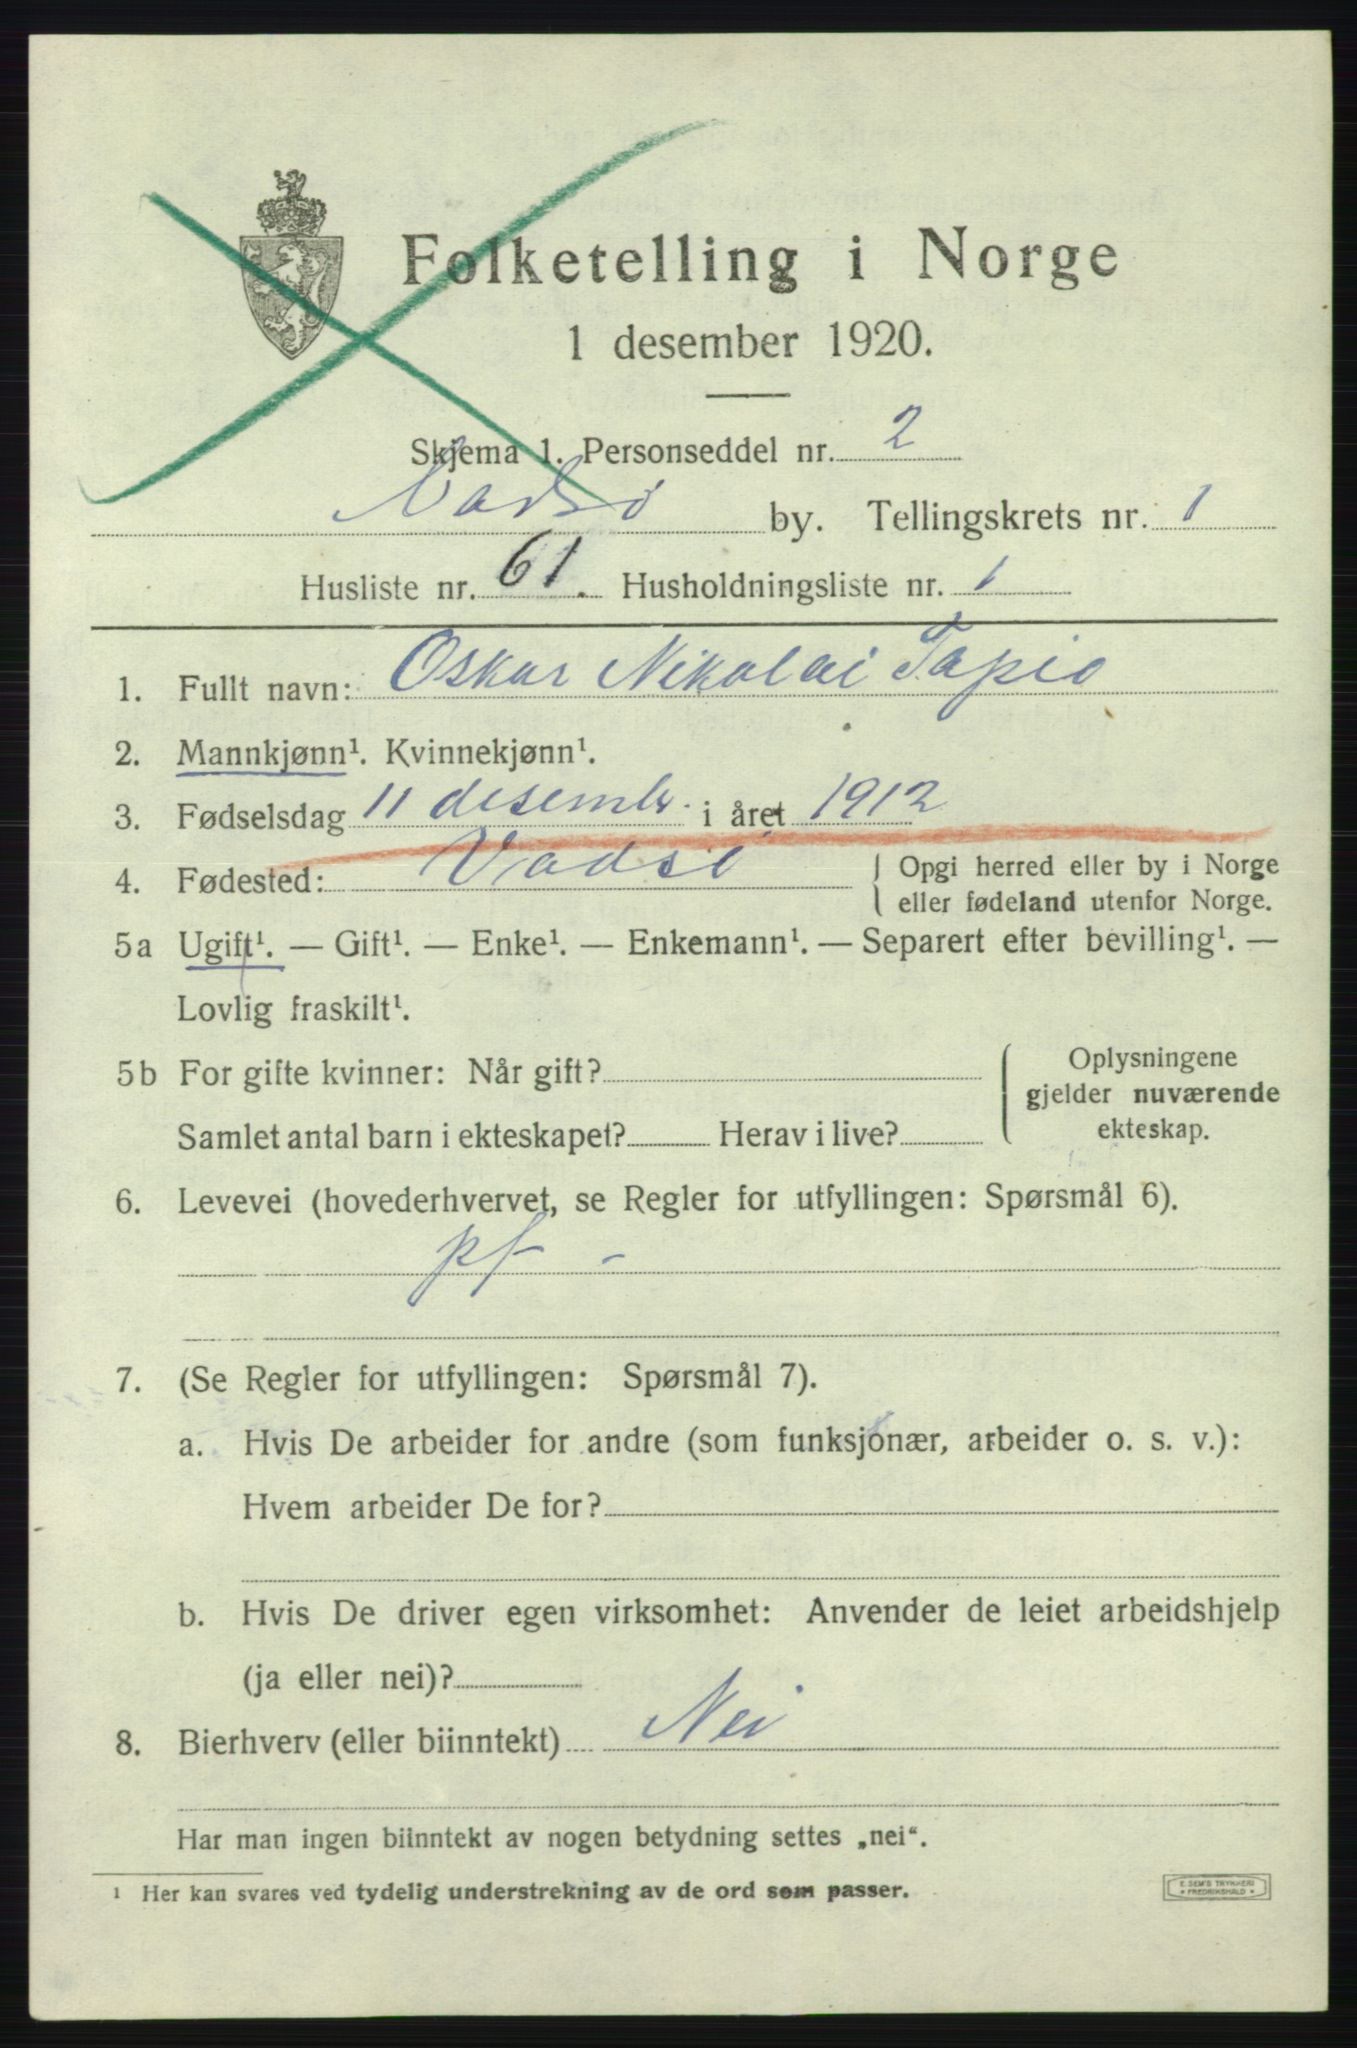 Folketelling i Norge
1 desember 1920.
Skjema 1. Personseddel nr. 2
Vadsø by. Tellingskrets nr. 1
Husliste nr. 61. Husholdningsliste nr. 1
1. Fullt navn: Oskar Nikolai Tapio
2. Mannkjønn¹. Kvinnekjønn¹.
3. Fødselsdag 11 desembr. i året 1912
4. Fødested: Vadsø { Opgi herred eller by i Norge
eller fødeland utenfor Norge.
5a Ugift¹. — Gift¹. — Enke¹. — Enkemann¹. — Separert efter bevilling¹. —
Lovlig fraskilt¹.
5b For gifte kvinner: Når gift?
Samlet antal barn i ekteskapet? Herav i live?
{ Oplysningene
gjelder nuværende
ekteskap.
6. Levevei (hovederhvervet, se Regler for utfyllingen: Spørsmål 6).
pf -
7. (Se Regler for utfyllingen: Spørsmål 7).
a. Hvis De arbeider for andre (som funksjonær, arbeider o. s. v.):
Hvem arbeider De for?
b. Hvis De driver egen virksomhet: Anvender de leiet arbeidshjelp
(ja eller nei)?
8. Bierhverv (eller biinntekt) Nei
Har man ingen biinntekt av nogen betydning settes „nei“.
¹ Her kan svares ved tydelig understrekning av de ord som passer.
E. SEM'S TRYKKERI
• FREDRIKSHALD •